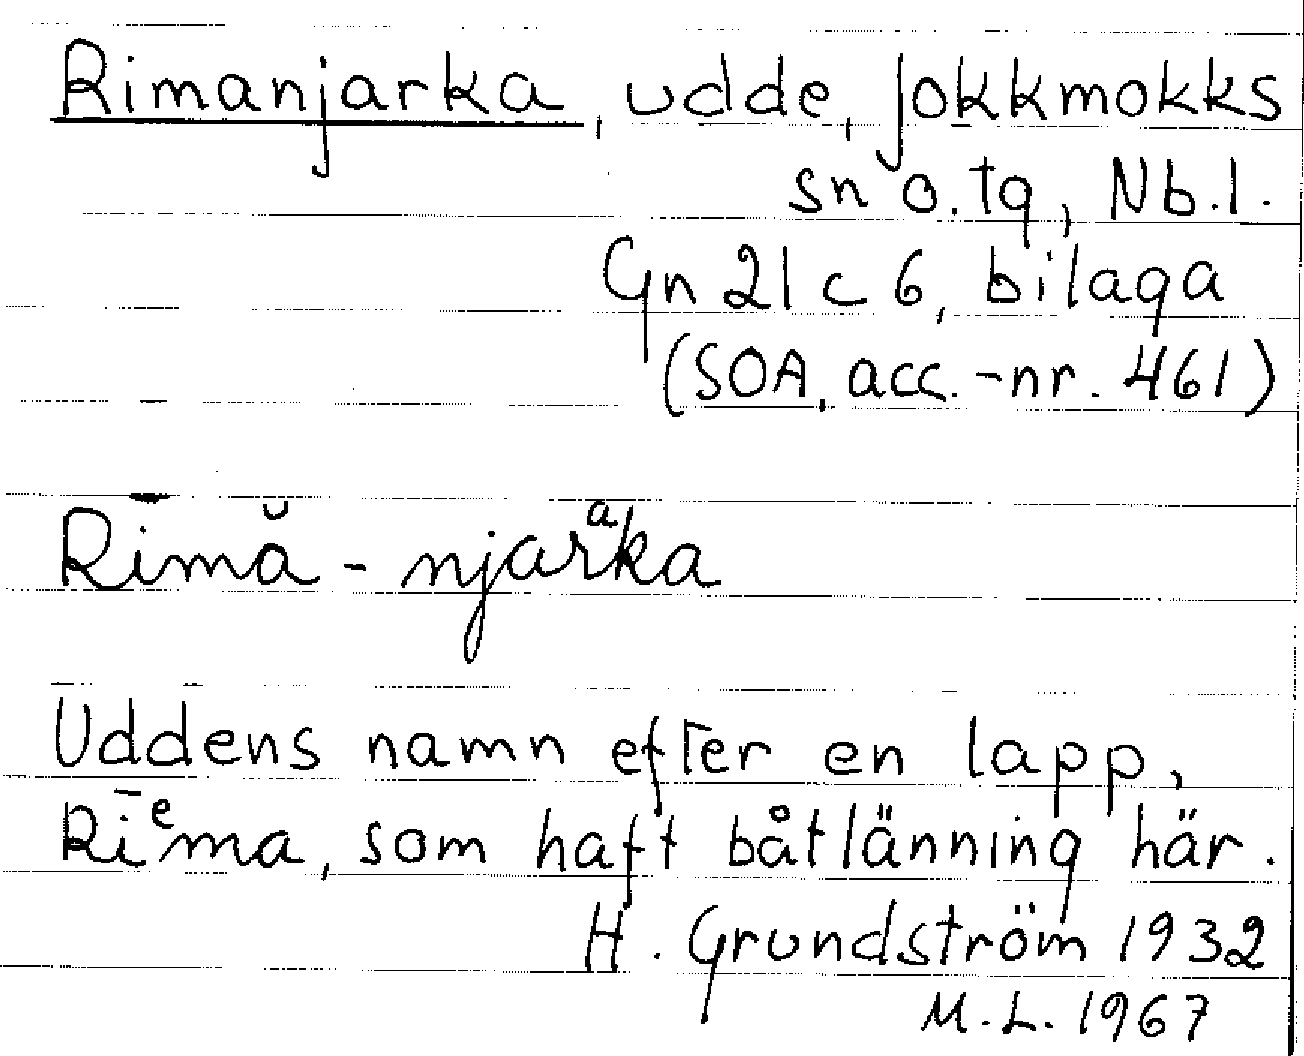 Rimanjarka, udde, Jokkmokks
sn o. tg, Nb. l.
Gn 21 c 6, bilaga
(SOA, acc.-nr. 461)
Rīmă - njarᵃka
Uddens namn efter en lapp,
Rīᵉma, som haft båtlänning här.
H. Grundström 1932
M.L. 1967